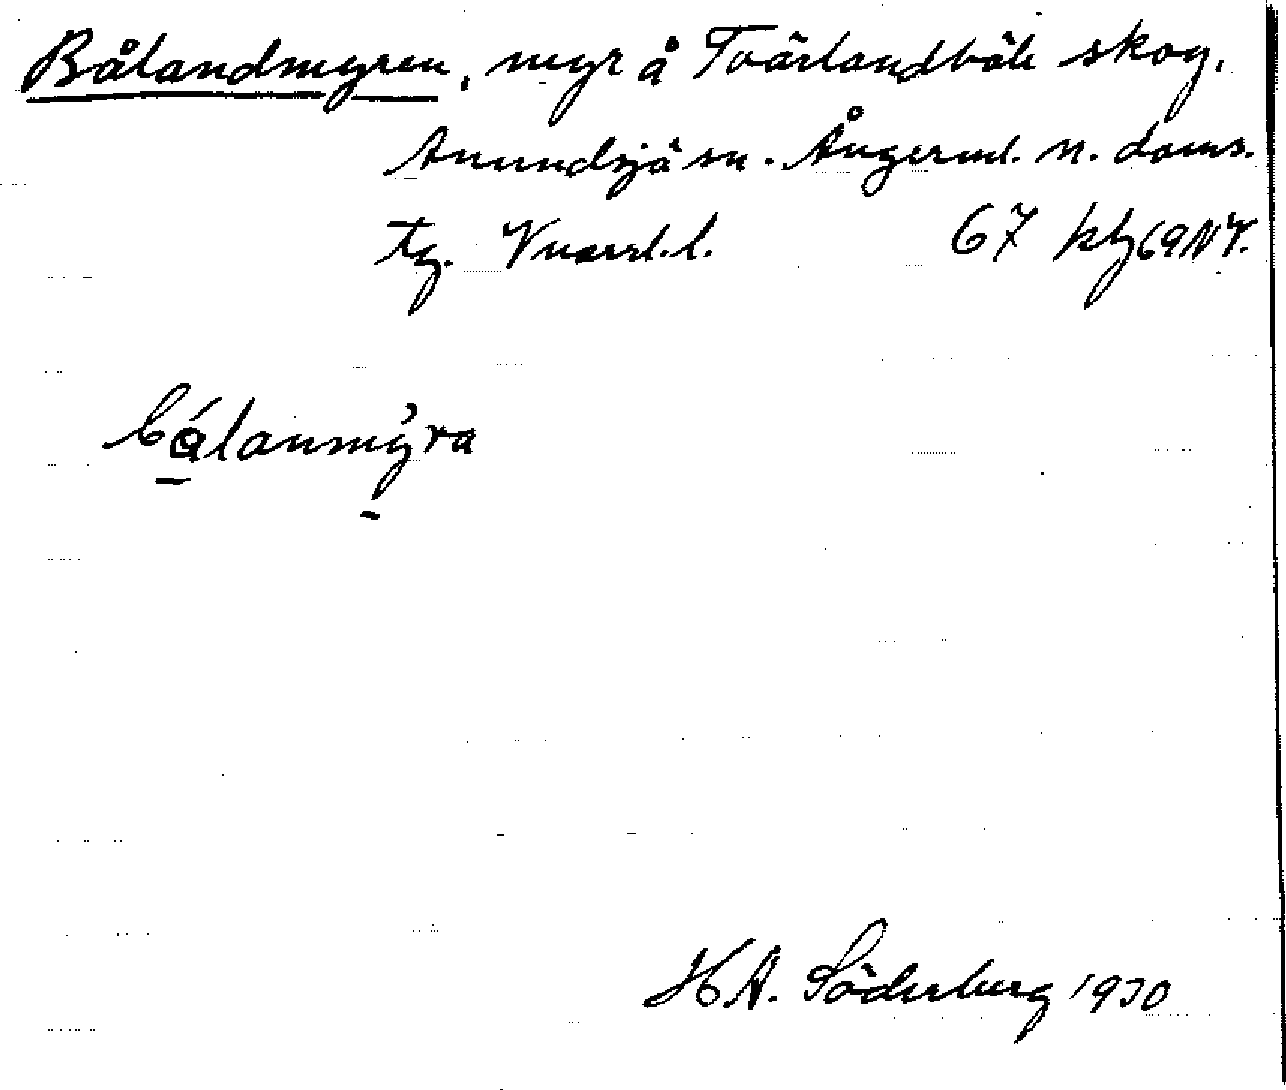 Bålandmyren, myr å Tvärlandbäck skog,
Anundsjö sn. Ångerml. n. doms.
tg. Västernorrl. l. 67 kbl 69 NV.
bålanmýra
H A. Söderberg 1930